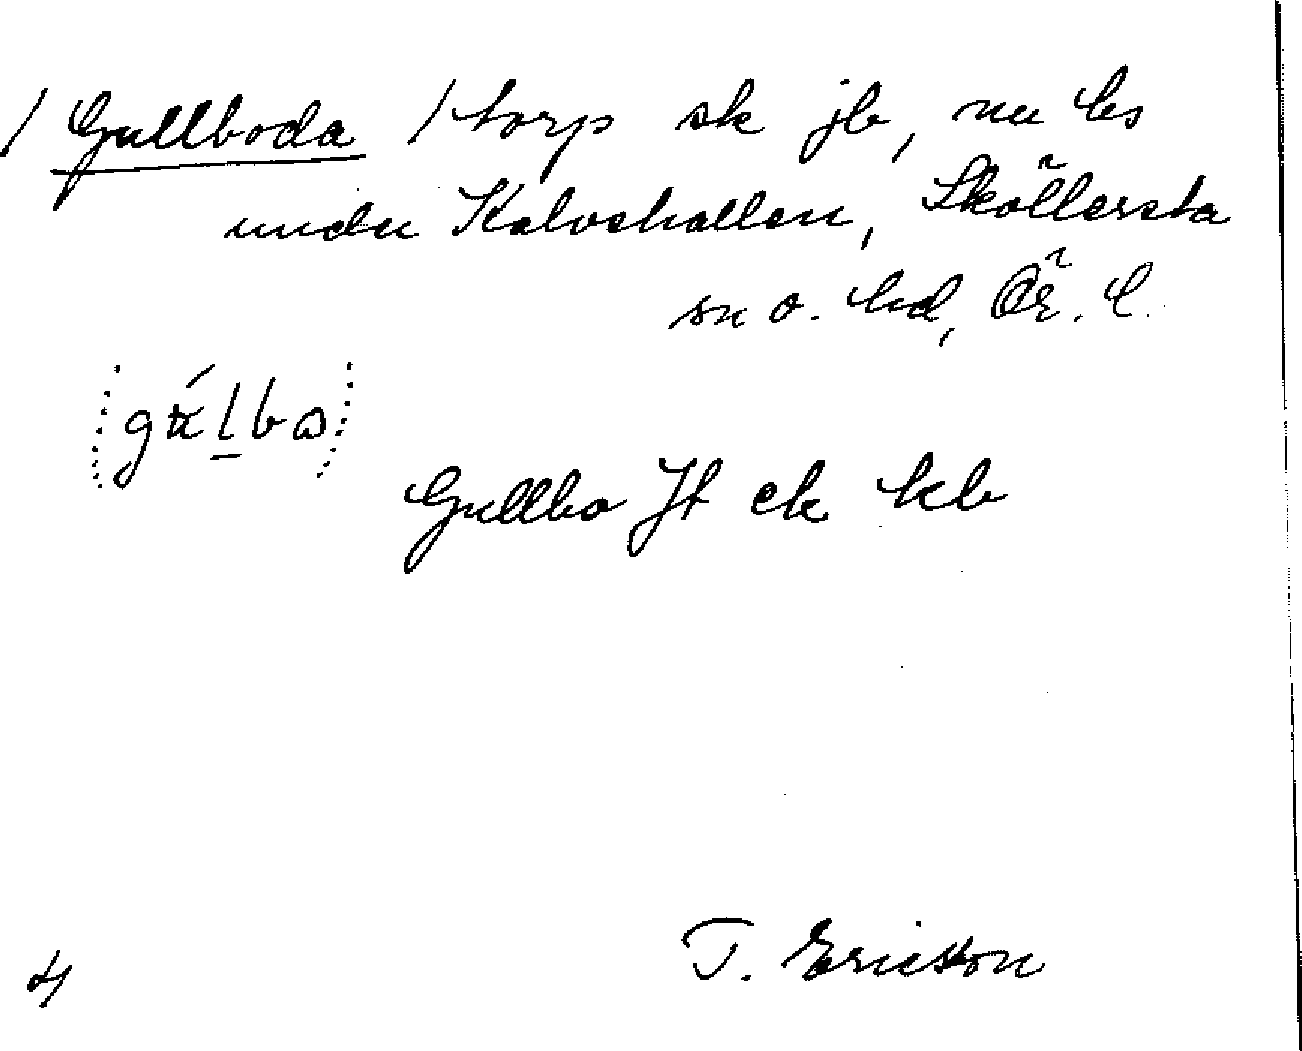 / Gullboda / torp sk jb, nu ls
under Kalvshallen, Sköllersta
sn o. hd, Ör. l.
Gullbo Jt ek kb
T. Ericsson
4